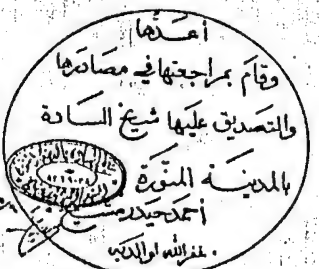 أعدّها
وقام بمراجعتها في مصادرها
والتصديق عليها شيخ السادة
بالمدينة المنوّرة
أحمد حيدر
غفر الله له ولوالديه